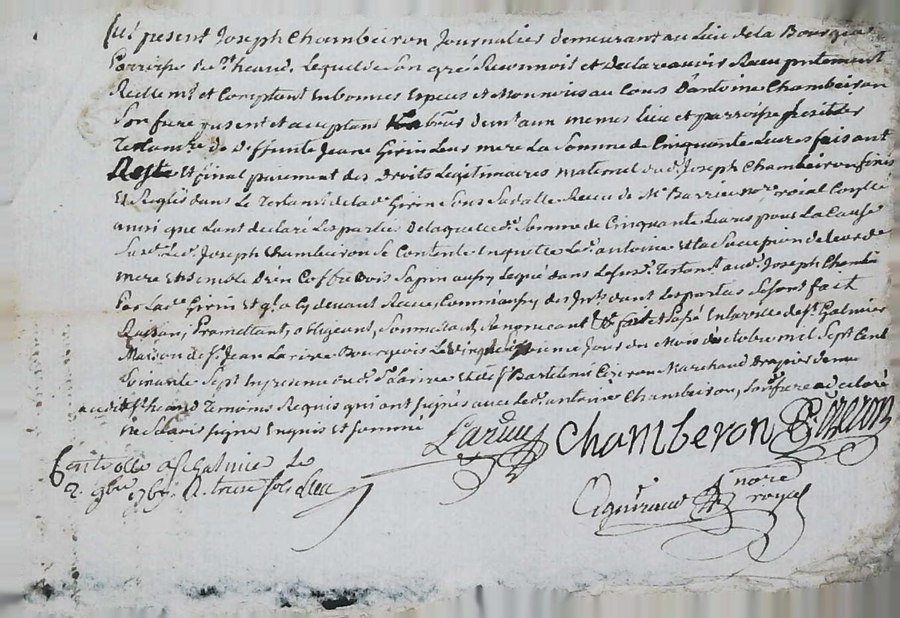 fut pesent Joseph Chambeiron Journalier demeurant au Lieu de la Bourgia
parroipe de st heand, Lequel de Son gré Reconnoit et declare avoir Recu presentement
Reellemt et Comptant en bonnes Especes et Monnoies au Cours D'antoine Chambeiron
Son frere presant et aceptant demt aux memes Lieu et parroipe heritier
Testamre de deffunte Jeane Girin Leur mere La Somme de Cinquante Livres faisant
Reste et final paiement des Droits Legitimaires maternel dud. Joseph Chambeiron fixés
et Reglés dans Le Testamt de lad. Girin Sous Sa datte Receu de Me Barrieu nore roial
ainsi que Lont declaré Les parties De laquelle de. Somme de Cinquante Livres pour La Cause
Led. Joseph Chambeiron Se Contente Enquitte Led. antoine et la Sucession de leurde
mere ensemble D'un Coffre bois Sapin Legué dans Testamt aud. Joseph Chambeiron
par Lad. Girin et qu'il a Cy devant Receu dont Les parties Se sont fait
Raison, Promettant, obligeant, Soumettant, Renoncant fait et passé en la ville de st Galmier
Maison de sr Jean Larive Bourgeois Le vingt jour du Mois doctobre mil Sept Cent
Soixante Sept En presence dud. sr Larive et de sr Bartelemi Ceseron Marchand Drapier demt
audit st heand Temoins Requis qui ont signés avec led. antoine Chambeiron, Son frere a declaré
ne Savoir signer Enquis et Sommé
Larive Chamberon Cezeron
Controllé a st Galmier le
2. 9bre 1767. R. treise sols
nore
royal